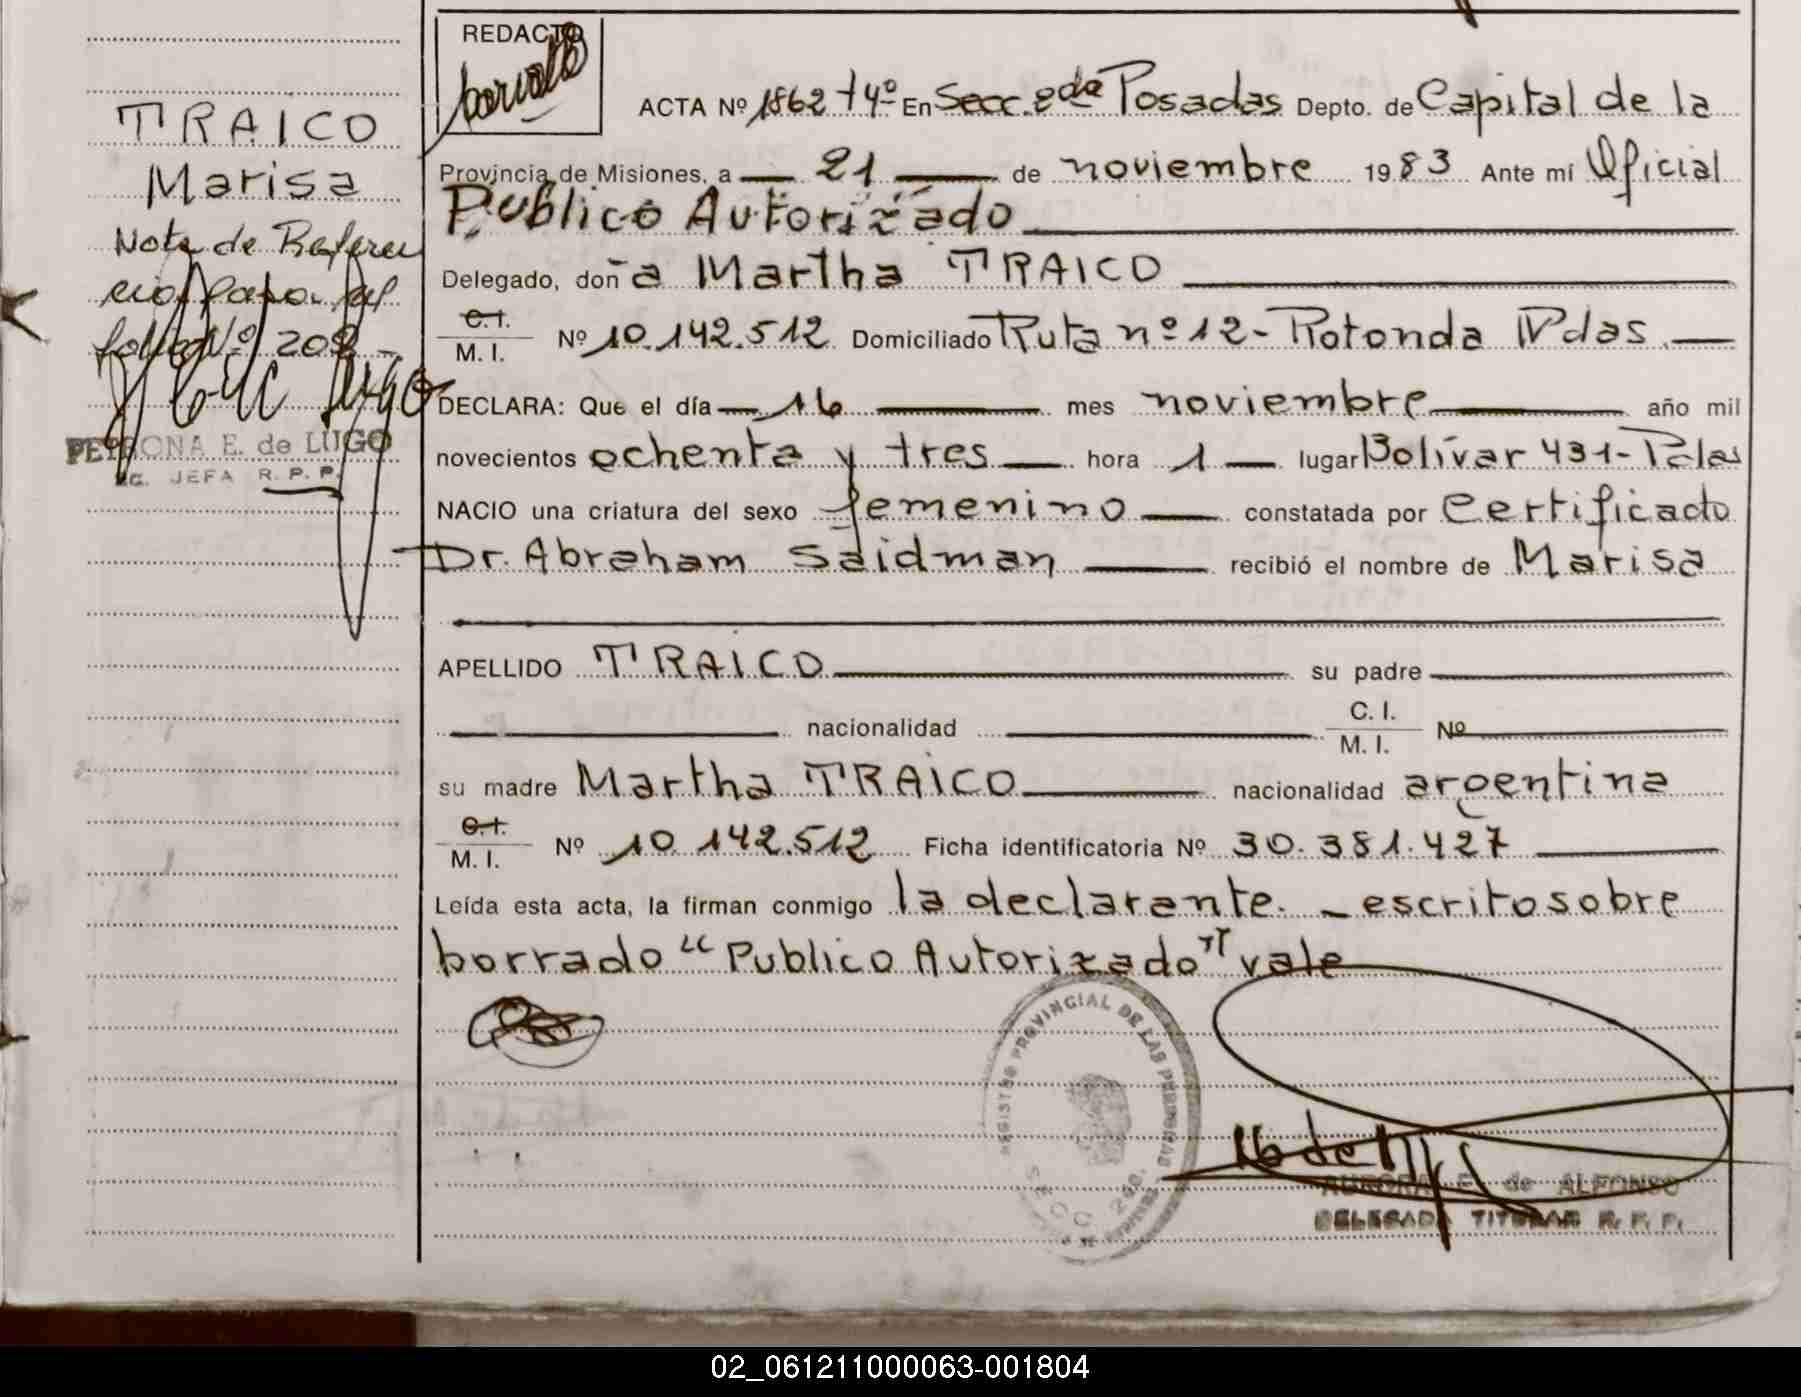 REDACTO
TRAICO
Marisa
Nota de Referen
cia pasa al
folio Nº 208
PETRONA E. de LUGO
JEFA R.P.P.
ACTA Nº 1862 tº 4º En Secc. 2da Posadas Depto. de Capital de la
Provincia de Misiones, a 21 de noviembre 1983 Ante mí Oficial
Publico Autorizado
Delegado, doña Martha TRAICO
C.I. M.I. Nº 10.142.512 Domiciliado Ruta nº 12 - Rotonda Pdas.
DECLARA: Que el día 16 mes noviembre año mil
novecientos ochenta y tres hora 1 lugar Bolívar 431 - Pdas
NACIO una criatura del sexo femenino constatada por Certificado
Dr. Abraham Saidman recibió el nombre de Marisa
APELLIDO TRAICO su padre
nacionalidad C.I. M.I. Nº
su madre Martha TRAICO nacionalidad argentina
C.I. M.I. Nº 10.142.512 Ficha identificatoria Nº 30.381.427
Leída esta acta, la firman conmigo la declarante. - escrito sobre
borrado "Publico Autorizado" vale
REGISTRO PROVINCIAL DE LAS PERSONAS
SECC 2da.
AURORA E. de ALFONSO
DELEGADA TITULAR R.P.P.
02_061211000063-001804